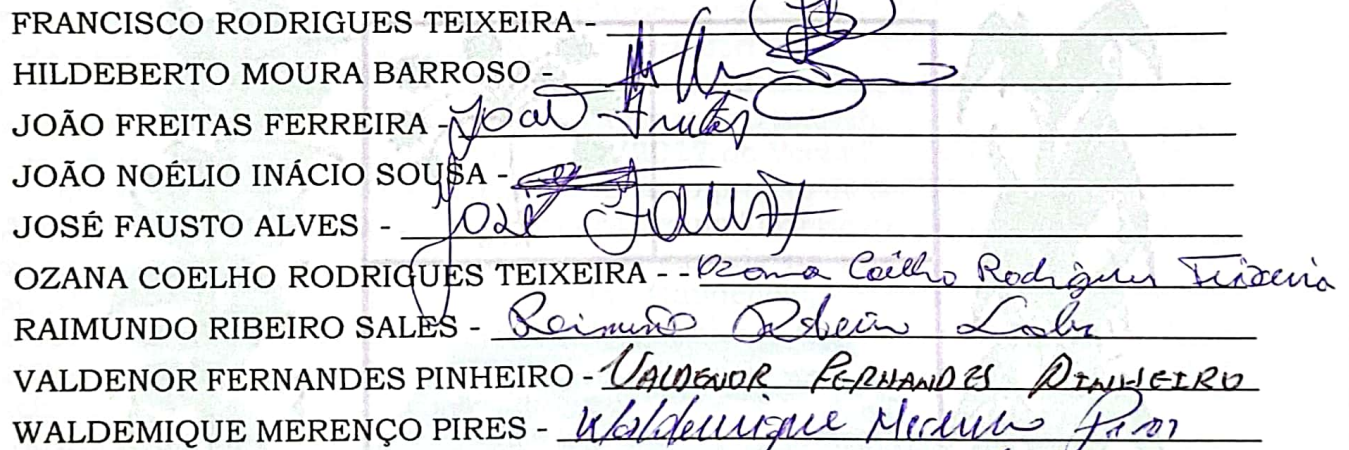 FRANCISCO RODRIGUES TEIXEIRA -
HILDEBERTO MOURA BARROSO -
JOÃO FREITAS FERREIRA - João Freitas
JOÃO NOÉLIO INÁCIO SOUSA -
JOSÉ FAUSTO ALVES - José Faust
OZANA COELHO RODRIGUES TEIXEIRA - - Ozana Coelho Rodrigues Teixeira
RAIMUNDO RIBEIRO SALES - Raimundo Ribeiro Sales
VALDENOR FERNANDES PINHEIRO - VALDENOR FERNANDES PINHEIRO
WALDEMIQUE MERENÇO PIRES - Waldemique Merenço Pires